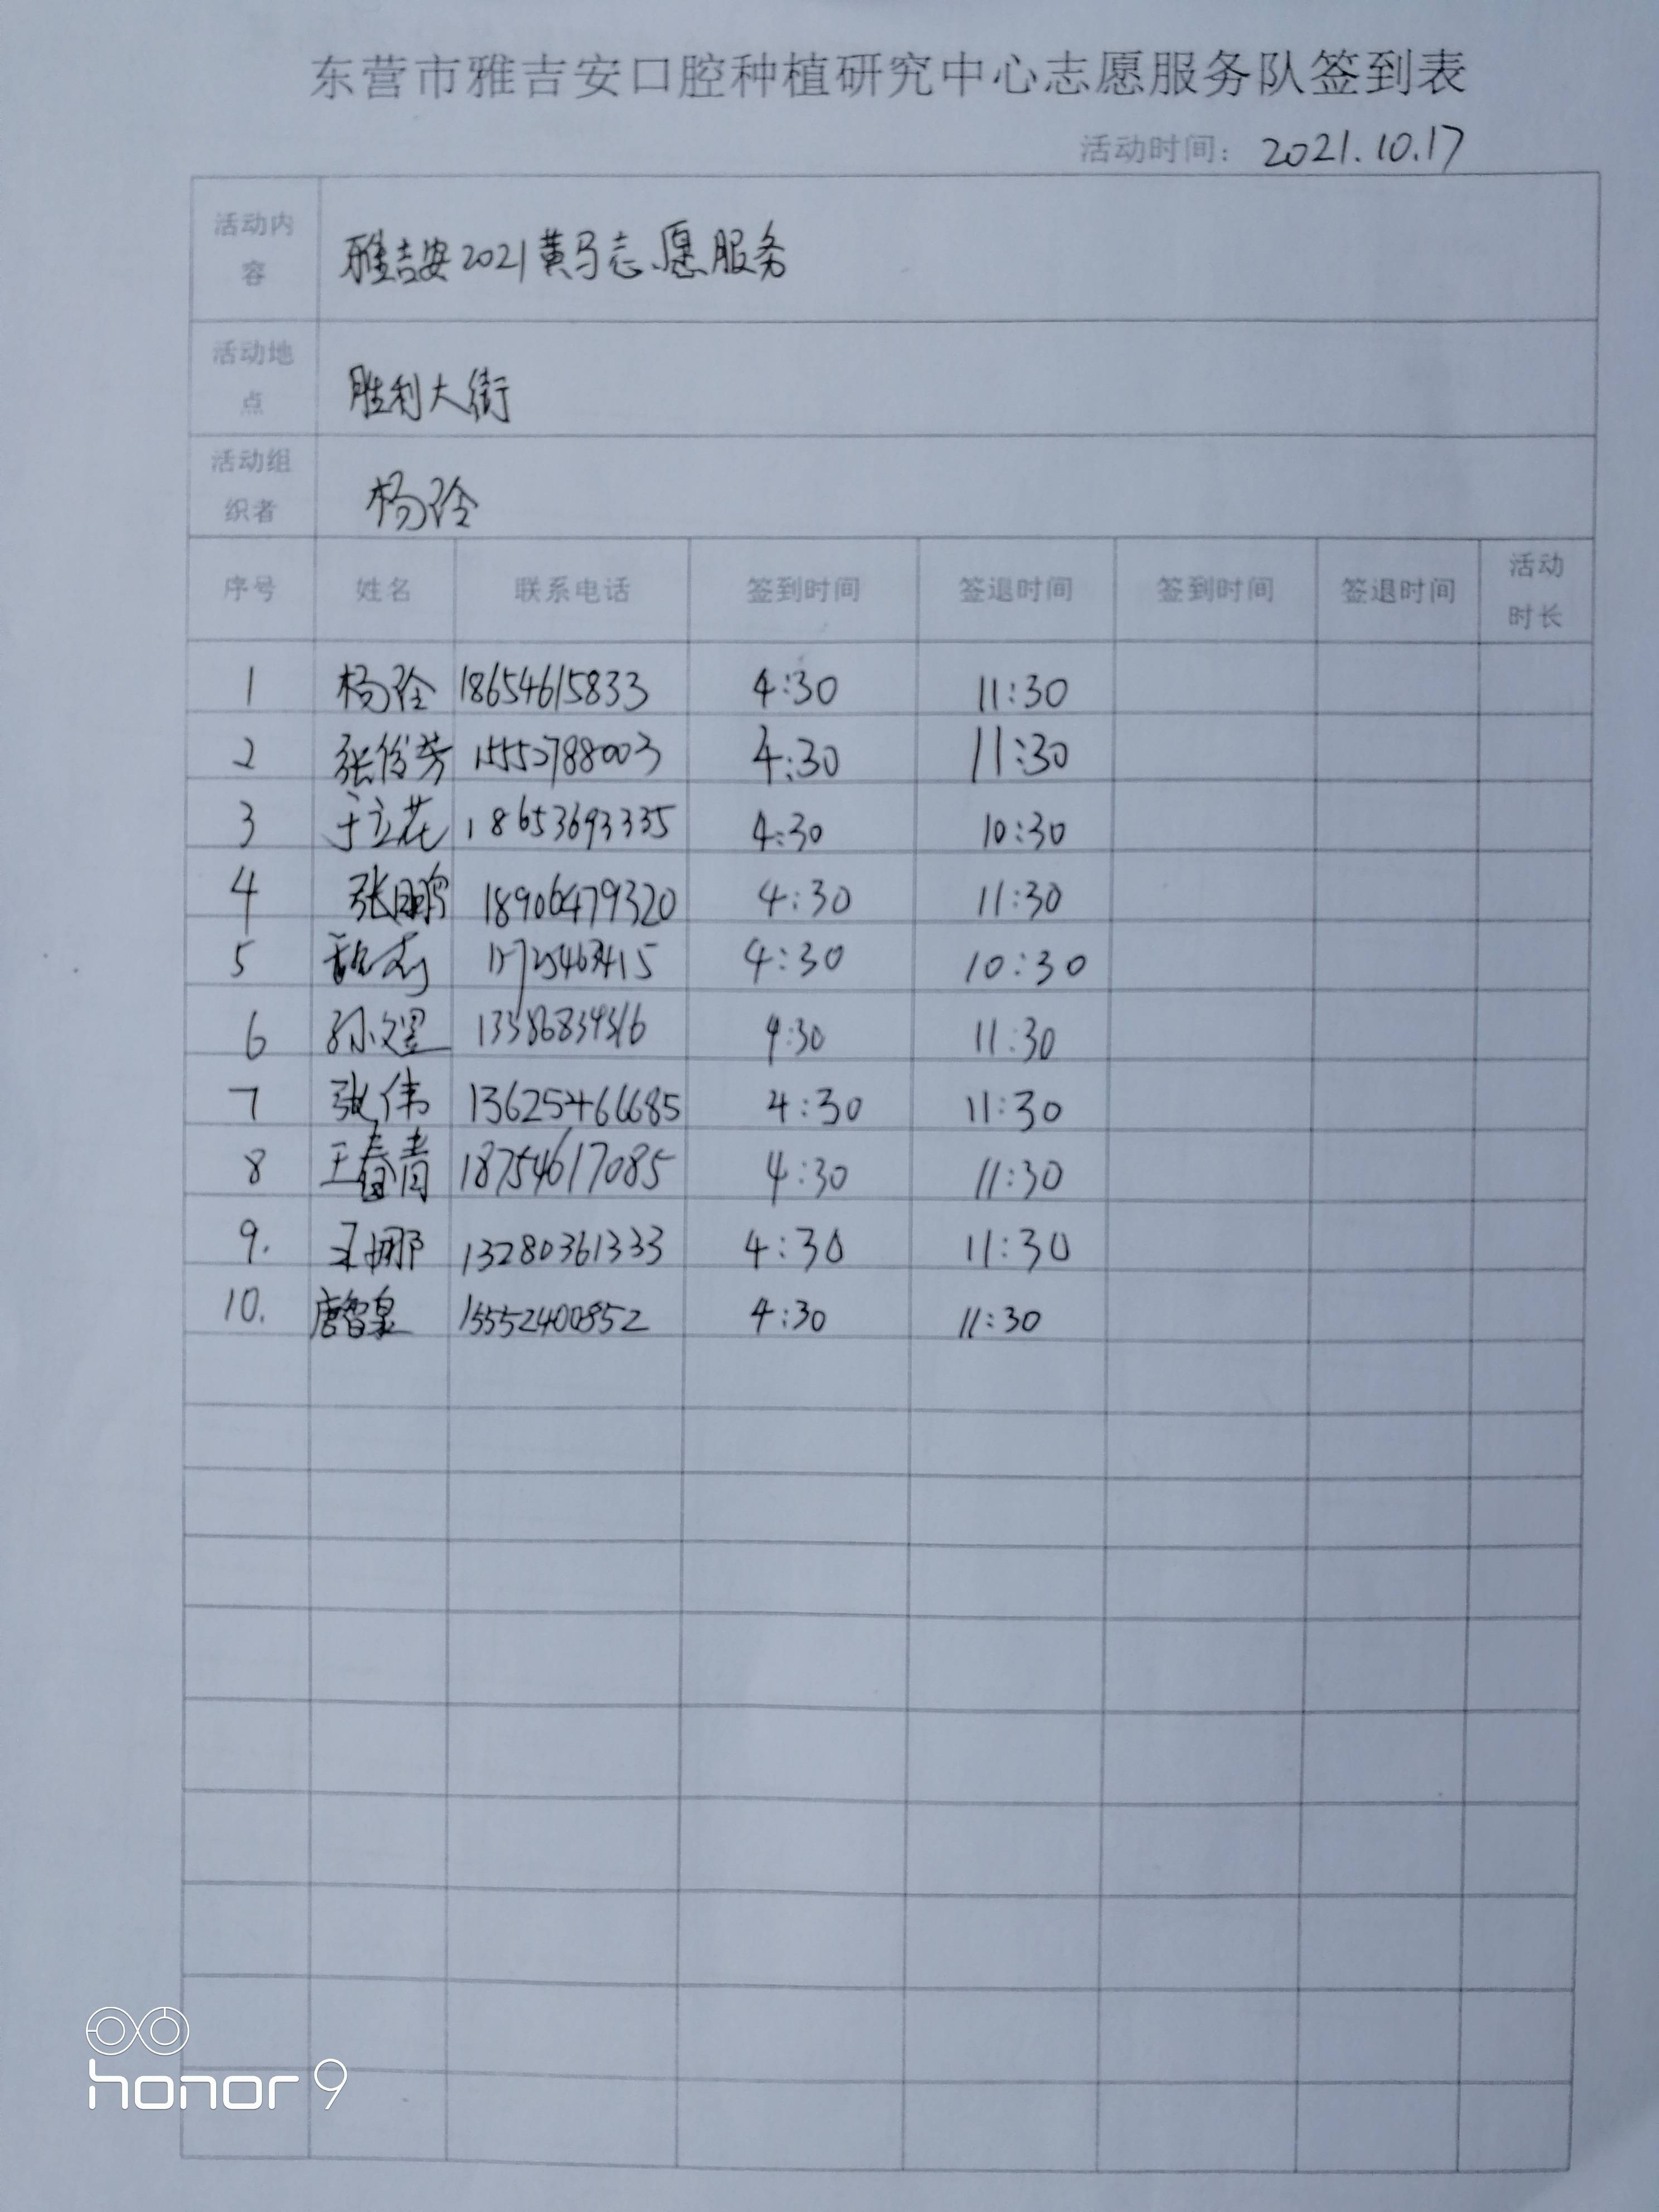 东营市雅吉安口腔种植研究中心志愿服务队签到表
活动时间： 2021.10.17
活动内容 雅吉安2021黄马志愿服务
活动地点 胜利大街
活动组织者 杨玲
序号 姓名 联系电话 签到时间 签退时间 签到时间 签退时间 活动时长
1 杨玲 18654615833 4:30 11:30
2 15552788003 4:30 11:30
3 于立花 18653693335 4:30 10:30
4 张鹏 18906479320 4:30 11:30
5 4:30 10:30
6 4:30 11:30
7 张伟 13625466685 4:30 11:30
8 王春青 18754617085 4:30 11:30
9. 王娜 13280361333 4:30 11:30
10. 唐智泉 15552400852 4:30 11:30
honor 9